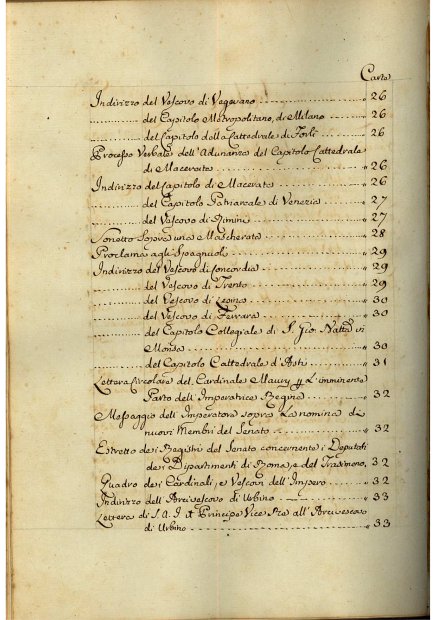 Carte
Indirizzo del Vescovo di Vegevano ............ „ 26
............ del Capitolo Metropolitano, di Milano ...... „ 26
............ del Capitolo della Cattedrale di Forlì ...... „ 26
Processo Verbale dell'Adunanza del Capitolo Cattedrale
di Macerata ............ „ 26
Indirizzo del Capitolo di Macerata ............ „ 26
............ del Capitolo Patriarcale di Venezia ...... „ 27
............ del Vescovo di Rimini ............ „ 27
Sonetto sopra una Mascherata ............ „ 28
Proclama agli Spagnuoli ............ „ 29
Indirizzo del Vescovo di Concordia ............ „ 29
............ del Vescovo di Trento ............ „ 29
............ del Vescovo di ............ „ 30
............ del Vescovo di Ferrara ............ „ 30
............ del Capitolo Collegiale di S. Gio. Batta in
Monza ............ „ 30
............ del Capitolo Cattedrale d'Asti ............ „ 31
Lettera Circolare del Cardinale Maury pp L'imminente
Parto dell'Imperatrice Regina ............ „ 32
Messaggio dell'Imperatore sopra La nomina di
nuovi Membri del Senato ............ „ 32
Estretto dei Registri del Senato concernente i Deputati
dei Dipartimenti di Roma, e del Trasimeno, 32
Quadro dei Cardinali, e Vescovi dell'Impero ...... „ 32
Indirizzo dell'Arcivescovo di Urbino ...... „ 33
Lettera di S. A. I. il Principe Vice Re all'Arcivescovo
di Urbino ............ „ 33